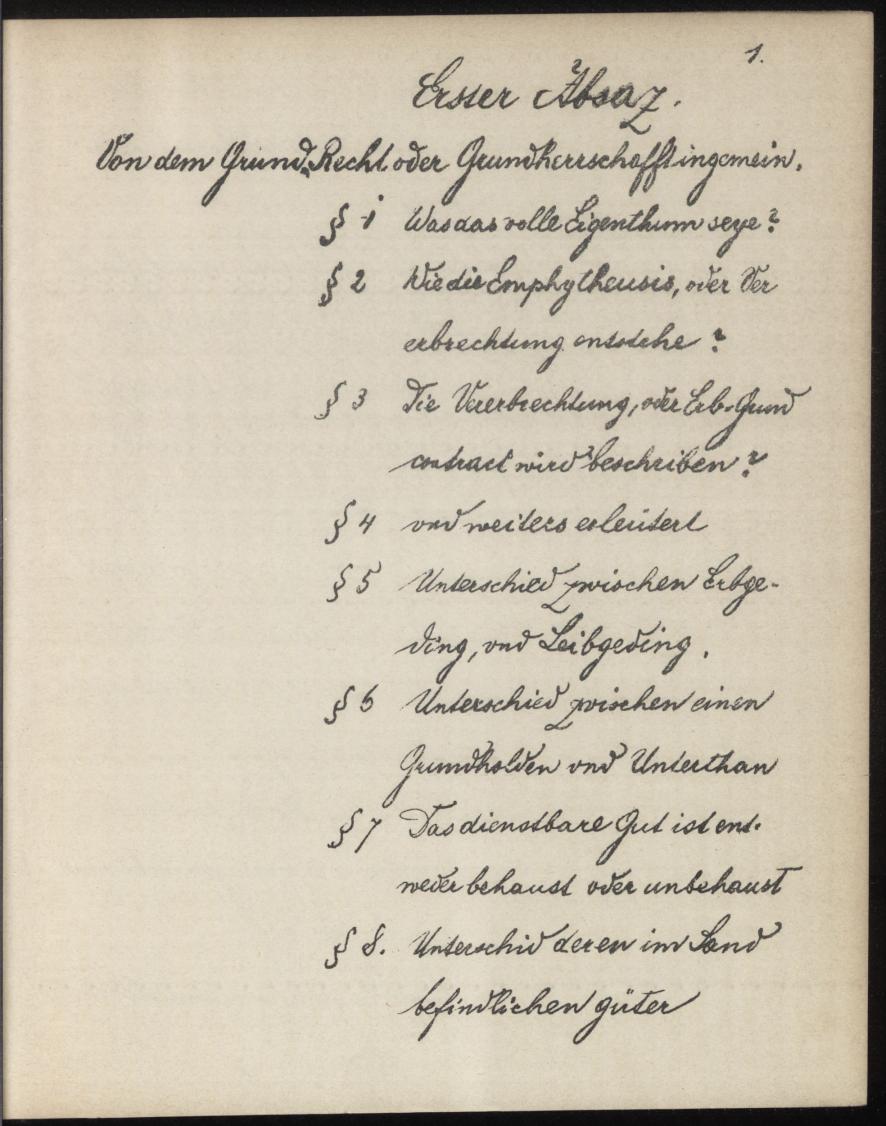 1.
Erster Absaz.
Von dem Grund-Recht oder Grundherrschafft ingemein.
§ 1 Was das volle Eigenthum seye?
§ 2 Wie die Emphytheusis, oder Ver
erbrechtung entstehe?
§ 3 Die Vererbrechtung, oder Erb-Grund
contract wird beschriben?
§ 4 vnd weiters erleütert
§ 5 Unterschied zwischen Erbge-
ding, vnd Leibgeding.
§ 6 Unterschied zwischen einen
Grundholden vnd Unterthan
§ 7 Das dienstbare Gut ist ent-
weder behaust oder unbehaust
§ 8. Unterschid deren im Land
befindlichen güter